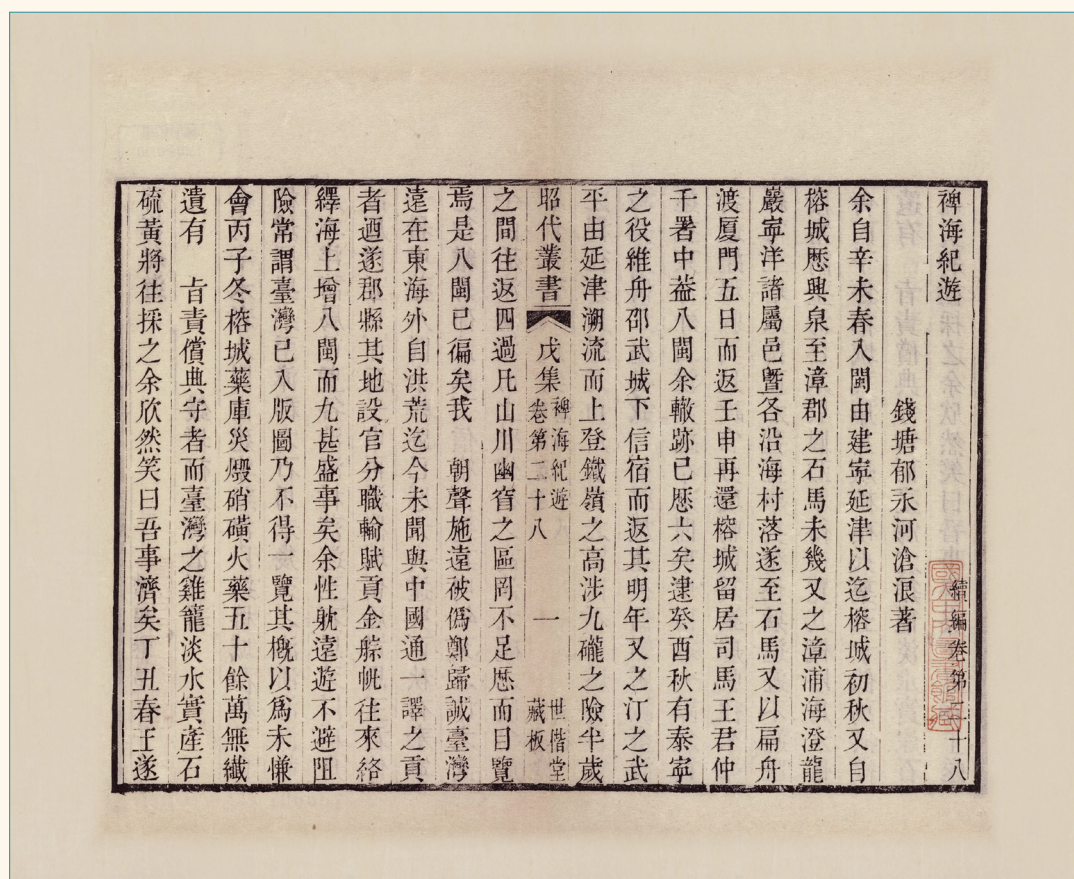 裨海紀遊 續編卷第二十八
錢塘郁永河滄浪著
余自辛未春入閩由建寧延津以迄榕城初秋又自
榕城歷興泉至漳郡之石馬未幾又之漳浦海澄龍
巖寧洋諸屬邑暨各沿海村落遂至石馬又以扁舟
渡厦門五日而返壬申再還榕城留居司馬王君仲
千署中葢八閩余轍跡已歷六矣逮癸酉秋有泰寧
之役維舟邵武城下信宿而返其明年又之汀之武
平由延津溯流而上登鐵嶺之高涉九礲之險半歲
昭代叢書 戊集 裨海紀遊 卷第二十八 一 世楷堂 藏板
之間往返四過凡山川幽窅之區罔不足歷而目覽
焉是八閩已徧矣我 朝聲施遠被僞鄭歸誠臺灣
遠在東海外自洪荒迄今未聞與中國通一譯之貢
者迺遂郡縣其地設官分職輸賦貢金艨帆往來絡
繹海上增八閩而九甚盛事矣余性躭遠遊不避阻
險常謂臺灣已入版圖乃不得一覽其概以爲未慊
會丙子冬榕城藥庫災燬硝磺火藥五十餘萬無纖
遺有 旨責償典守者而臺灣之雞籠淡水實產石
硫黃將往採之余欣然笑曰吾事濟矣丁丑春王遂